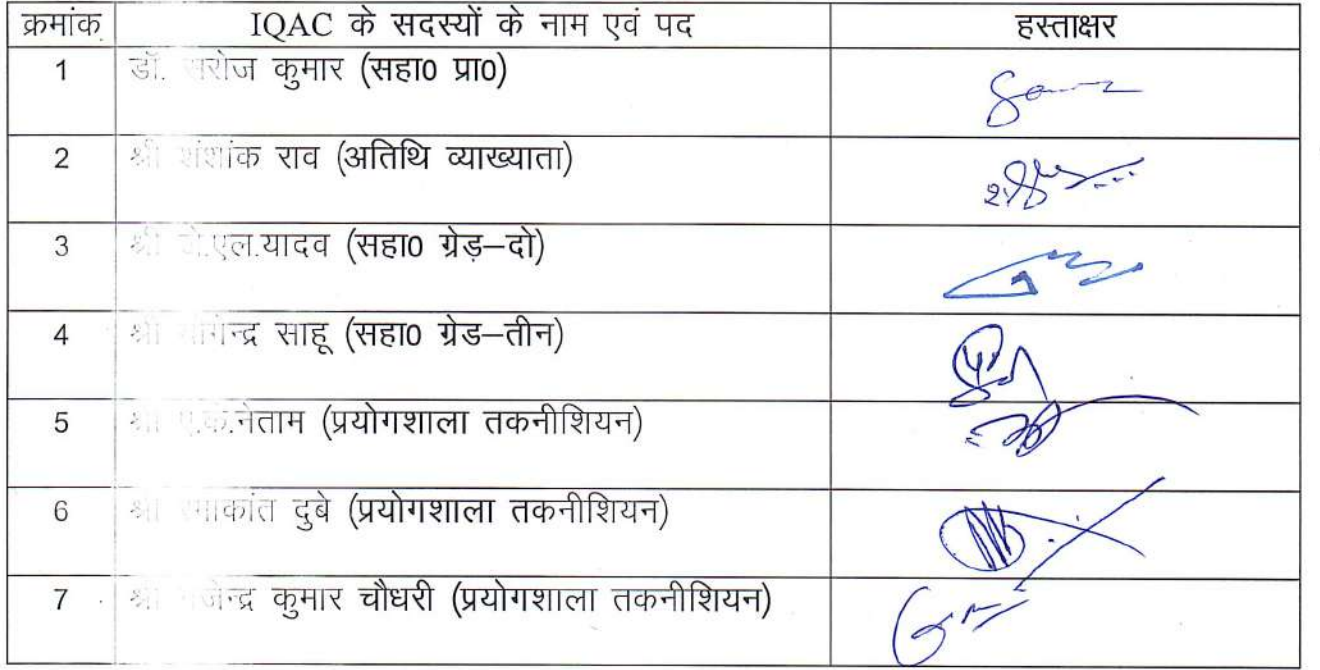 क्रमांक IQAC के सदस्यों के नाम एवं पद हस्ताक्षर
1 डॉ. सरोज कुमार (सहा0 प्रा0)
2 श्री शंशांक राव (अतिथि व्याख्याता)
3 श्री एल.यादव (सहा0 ग्रेड़–दो)
4 श्री साहू (सहा0 ग्रेड–तीन)
5 श्री ए.के.नेताम (प्रयोगशाला तकनीशियन)
6 श्री रमाकांत दुबे (प्रयोगशाला तकनीशियन)
7 श्री कुमार चौधरी (प्रयोगशाला तकनीशियन)